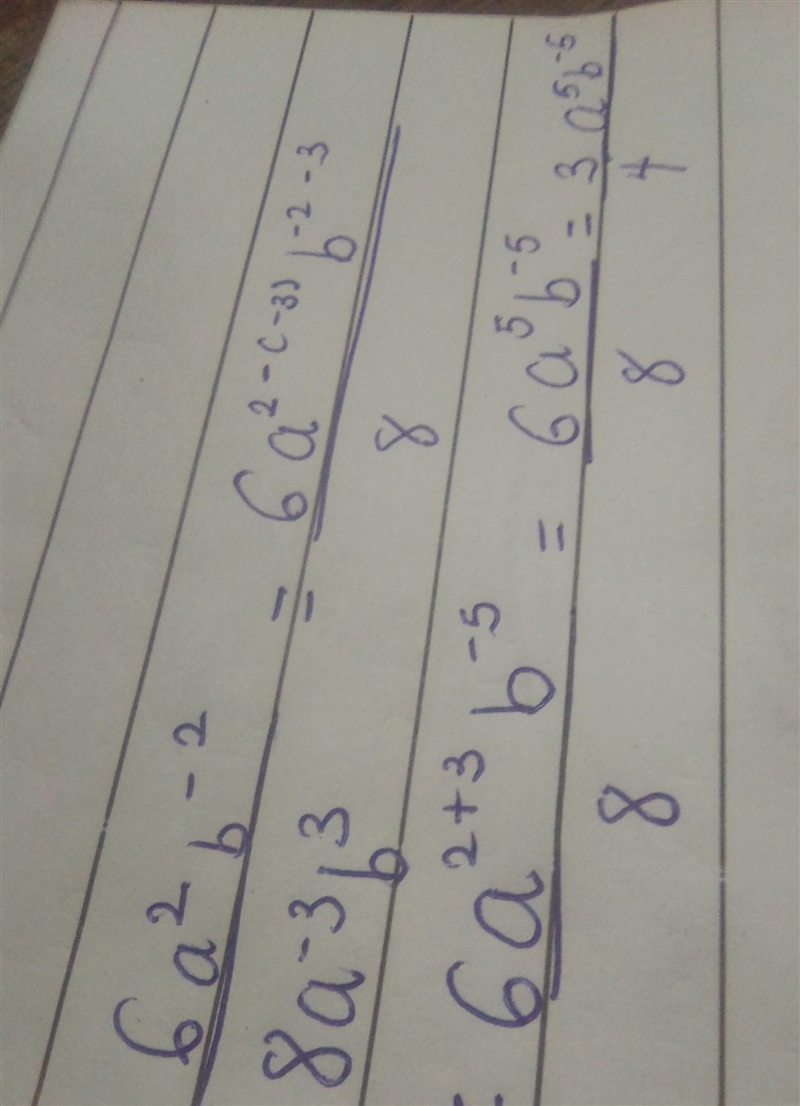 6a² b⁻² / 8a⁻³b³ = 6a²⁻⁽⁻³⁾ b⁻²⁻³ / 8
= 6a²⁺³ b⁻⁵ / 8 = 6a⁵b⁻⁵ / 8 = 3a⁵b⁻⁵ / 4